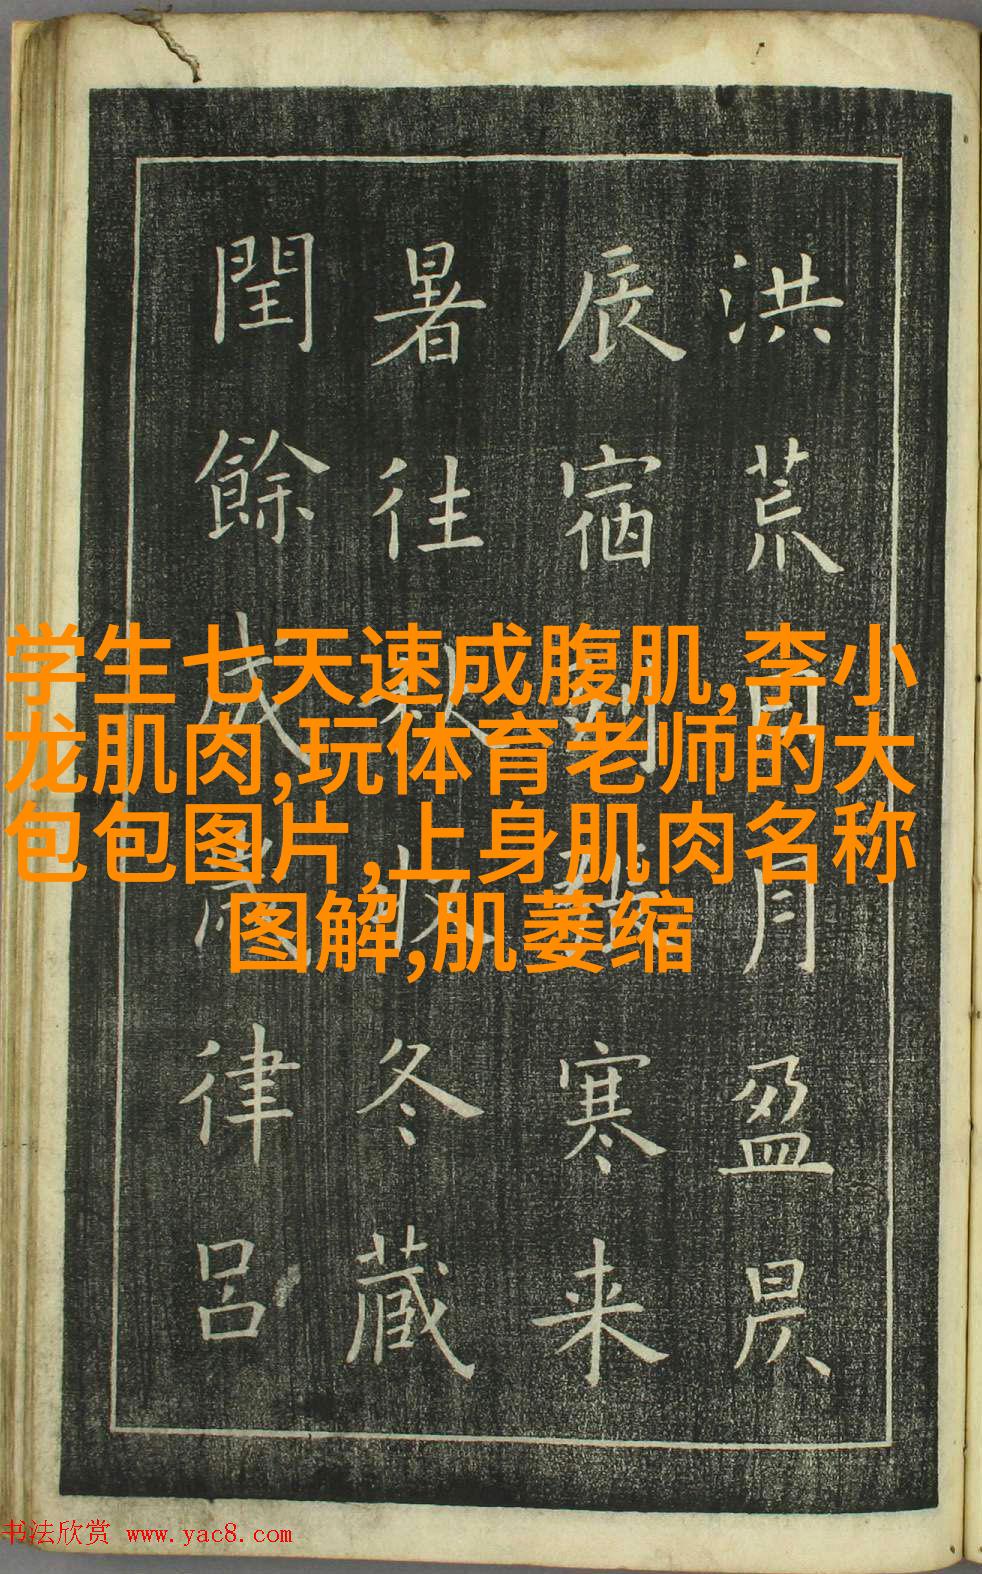 洪荒月盈昃
辰宿寒来
暑徃收冬藏
閏餘成律呂
学生七天速成腹肌,李小
龙肌肉,玩体育老师的大
包包图片,上身肌肉名称
图解,肌萎缩
书法欣赏 www.yac8.com